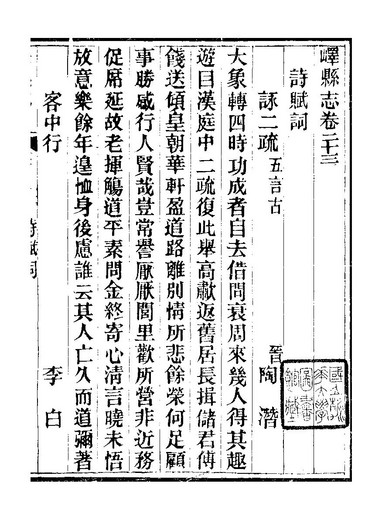 嶧縣志卷二十三
詩賦詞
詠二疏五言古
晉陶潛
大象轉四時功成者自去借問衰周來幾人得其趣
遊目漢庭中二疏復此舉高歗返舊居長揖儲君傅
餞送傾皇朝華軒盈道路離別情所悲餘榮何足顧
事勝感行人賢哉豈常譽厭厭閭里歡所營非近務
促席延故老揮觴道平素問金終寄心清言曉未悟
放意樂餘年遑恤身後慮誰云其人亡久而道彌著
客中行
李白